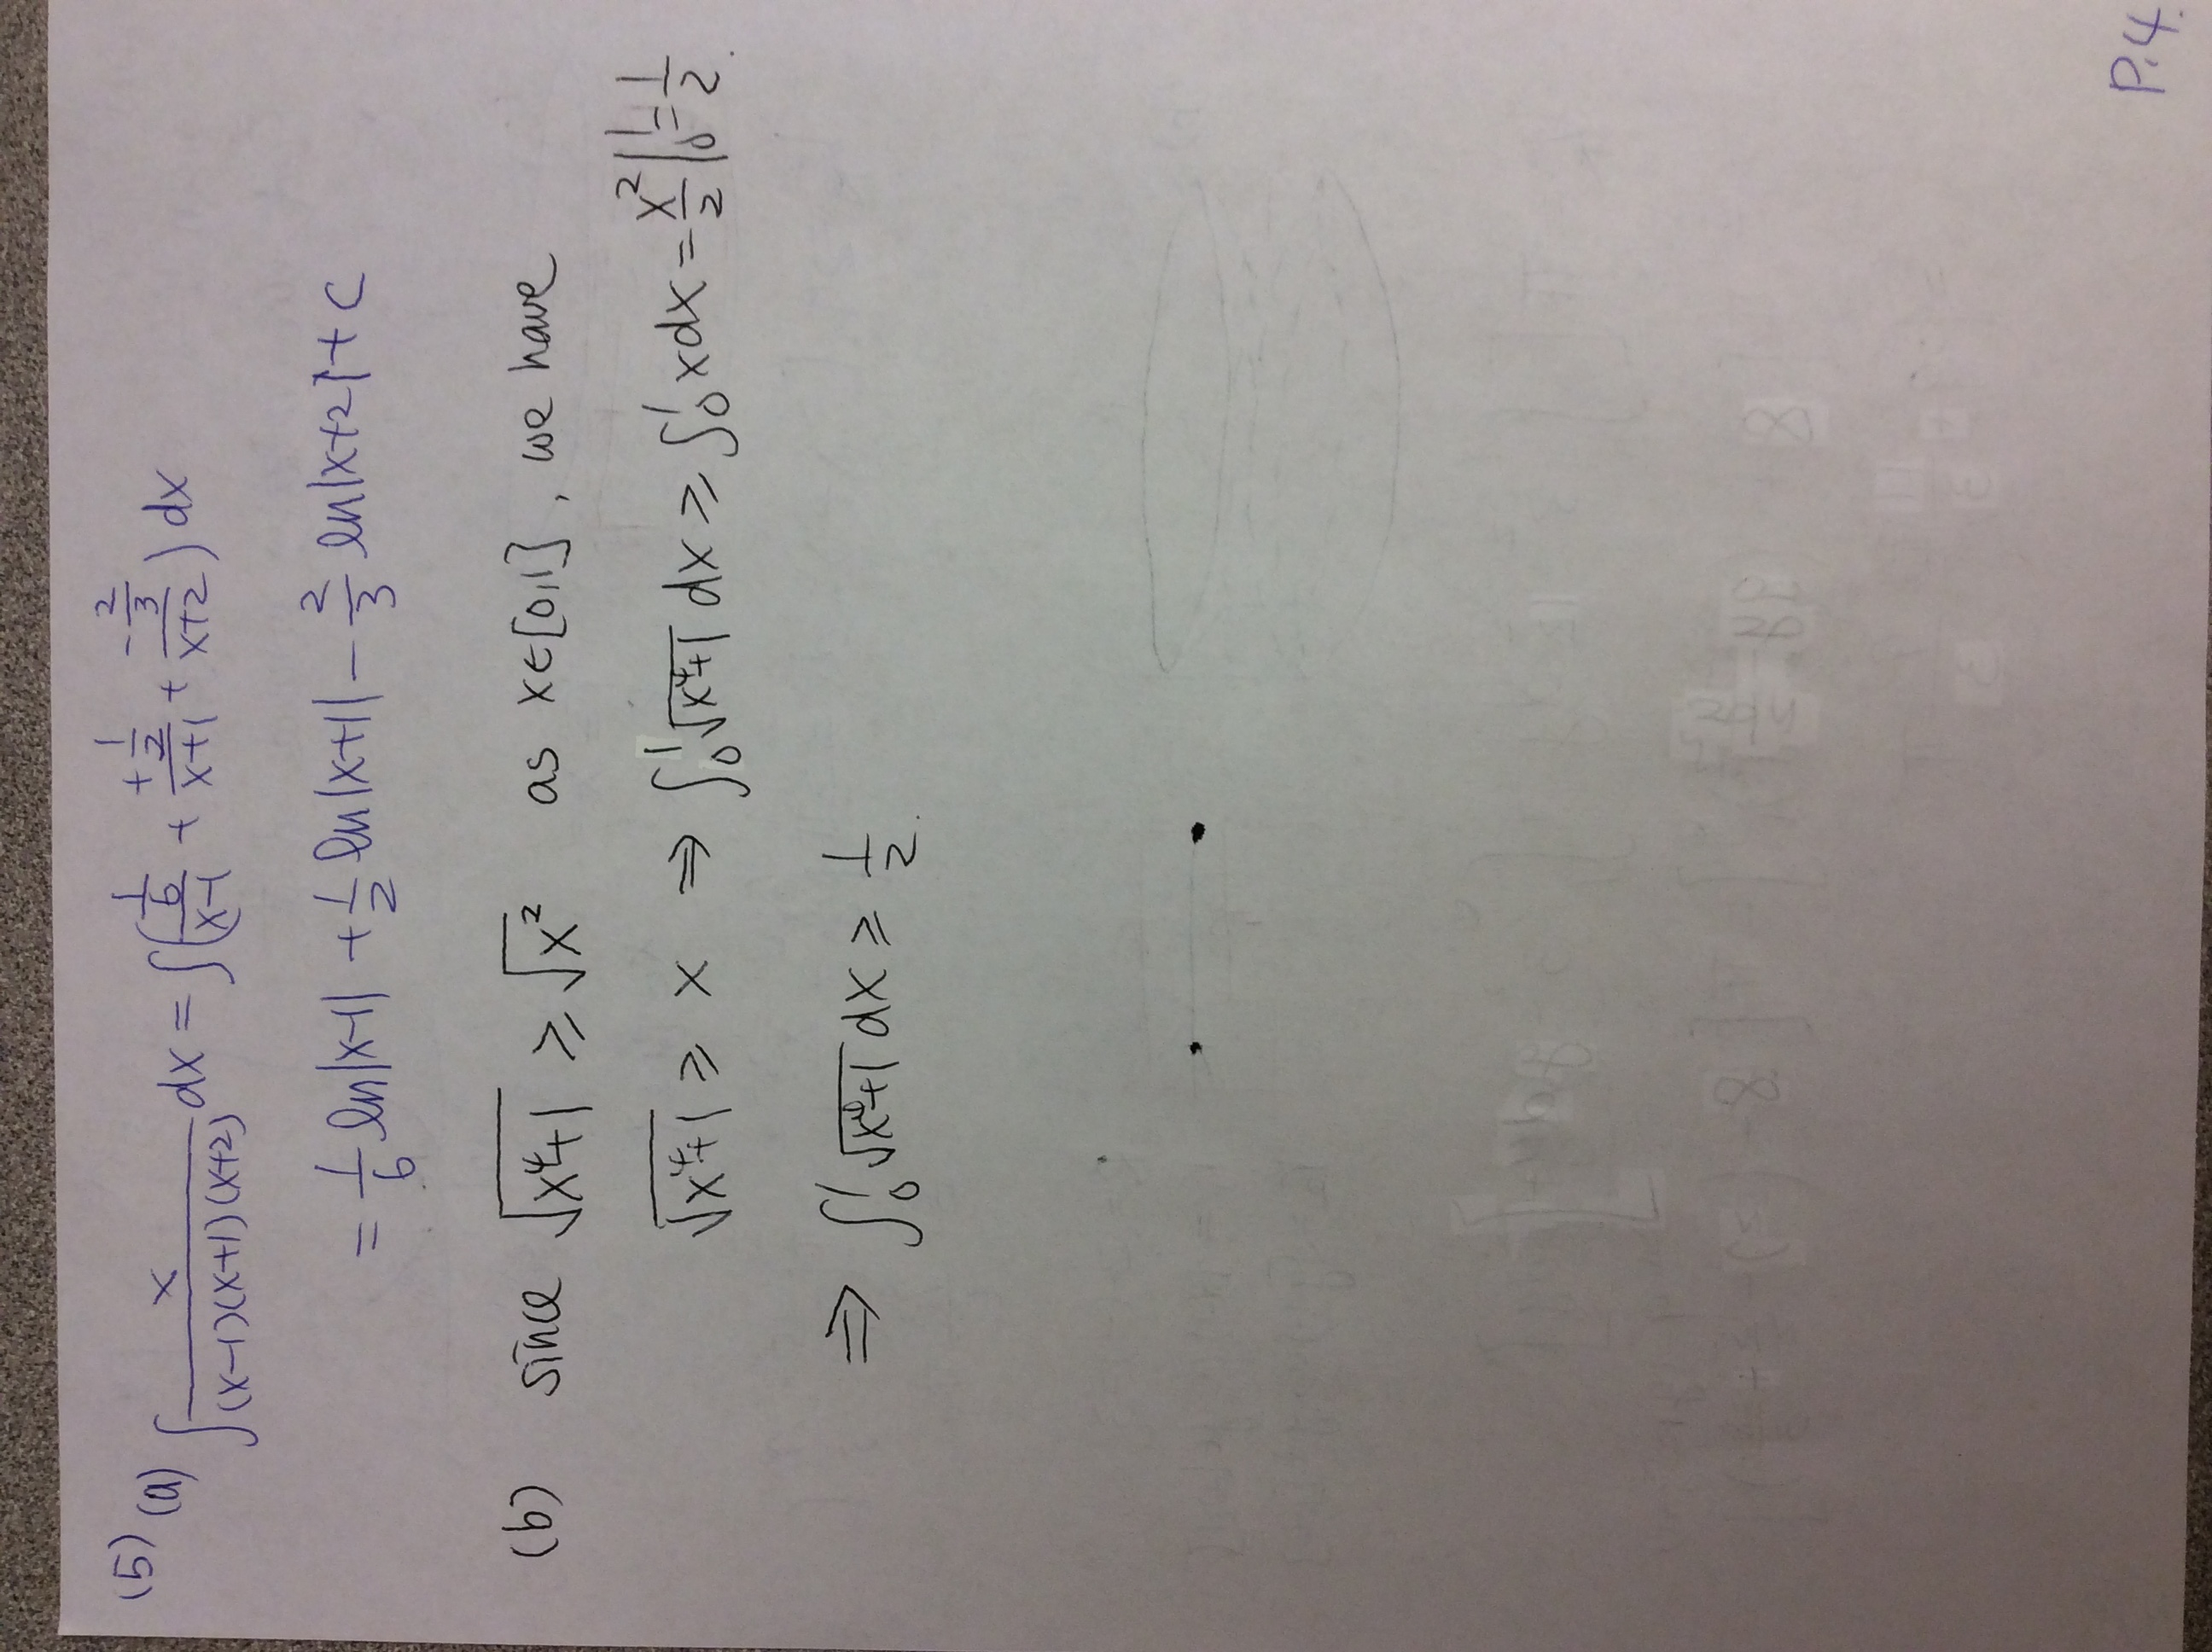 (5) (a) ∫ x/((x-1)(x+1)(x+2)) dx = ∫ ( (1/6)/(x-1) + (+1/2)/(x+1) + (-2/3)/(x+2) ) dx
= 1/6 ln|x-1| + 1/2 ln|x+1| - 2/3 ln|x+2| + C
(b) since √(x⁴+1) ≥ √x² as x∈[0,1], we have
√(x⁴+1) ≥ x ⇒ ∫₀¹ √(x⁴+1) dx ≥ ∫₀¹ x dx = x²/2 |₀¹ = 1/2.
⇒ ∫₀¹ √(x⁴+1) dx ≥ 1/2.
P.4.